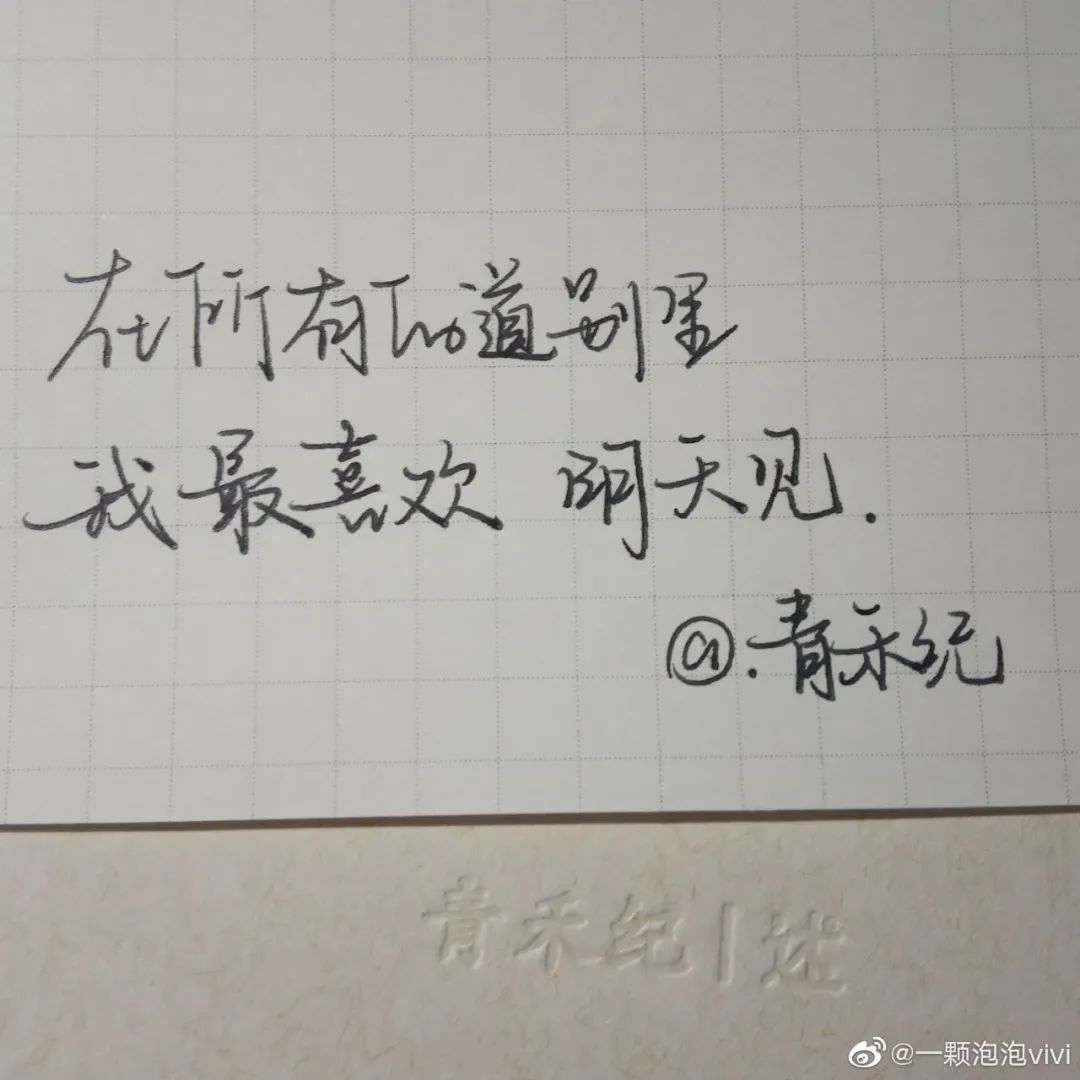 在所有的道别里
我最喜欢 明天见.
@.青禾纪
青禾纪|述
@一颗泡泡vivi